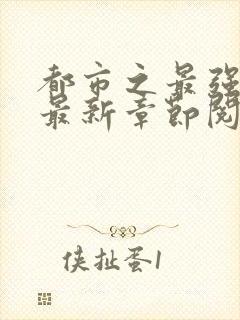 都市之最强
最新章节阅
侠扯蛋1